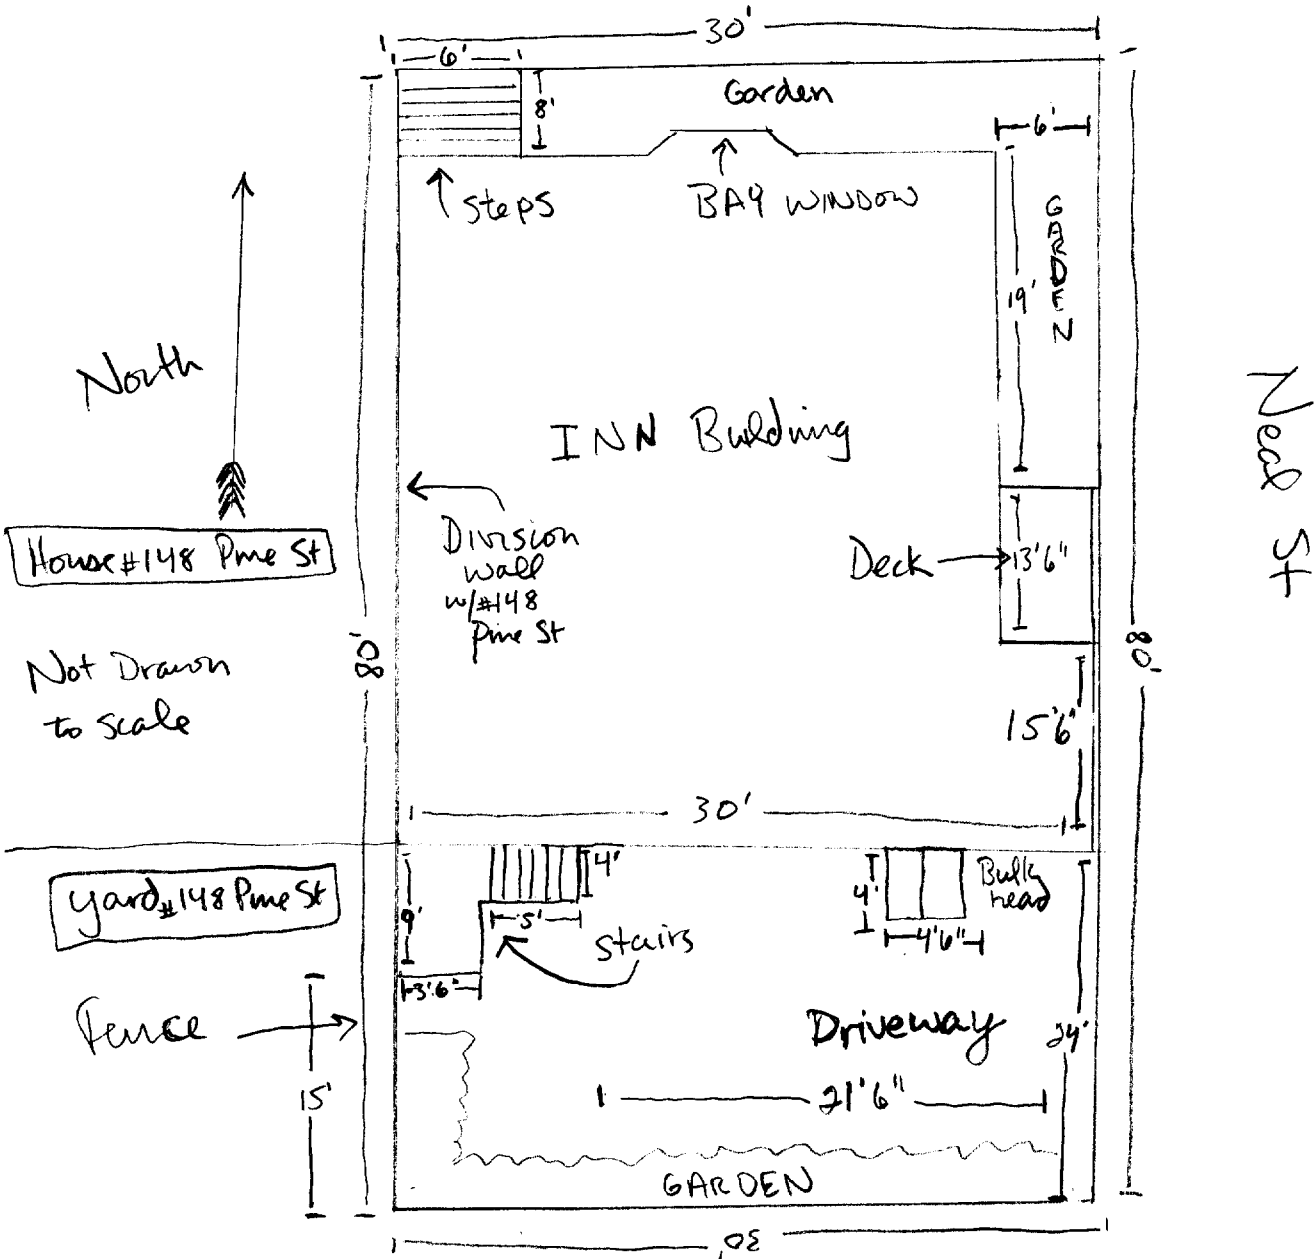 30'
6'
8'
Garden
6'
steps
BAY WINDOW
GARDEN
19'
North
INN Building
Neal St
House #148 Pine St
Division
wall
w/#148
Pine St
Deck
13'6"
Not Drawn
to scale
80'
80'
15'6"
30'
Yard #148 Pine St
9'
4'
5'
stairs
4'
4'6"
Bulk
head
3'6"
Fence
15'
Driveway
24'
21'6"
GARDEN
30'